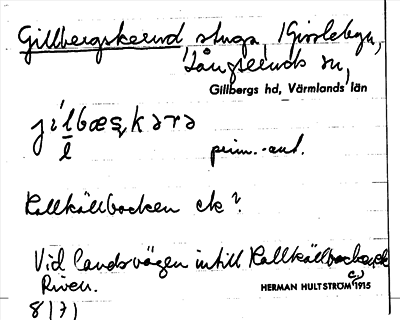 Gillbergskerud stuga, Gisslebyn,
Långseruds sn,
Gillbergs hd, Värmlands län
prim.-aud.
Kallkällbacken ek?
Vid landsvägen intill Kallkällbacken
Riven.
HERMAN HULTSTRÖM 1915
8/7)